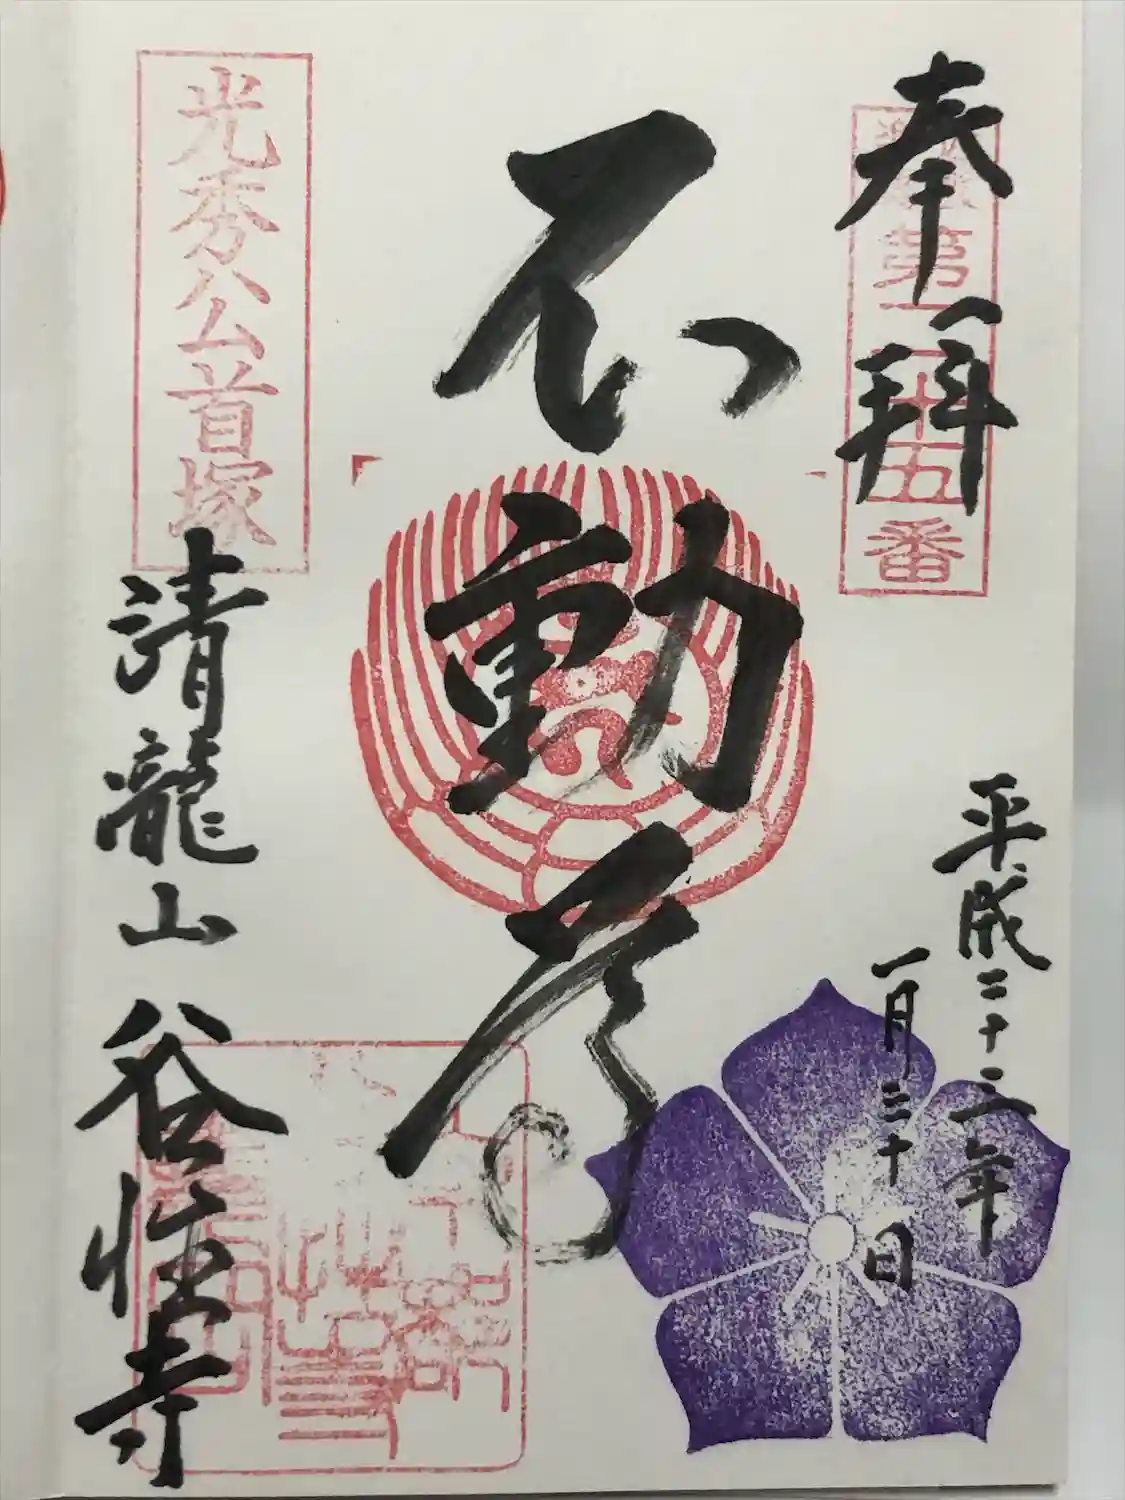 奉拝
第二十五番
平成二十三年
一月三十日
不動尊
光秀公首塚
清龍山
谷性寺